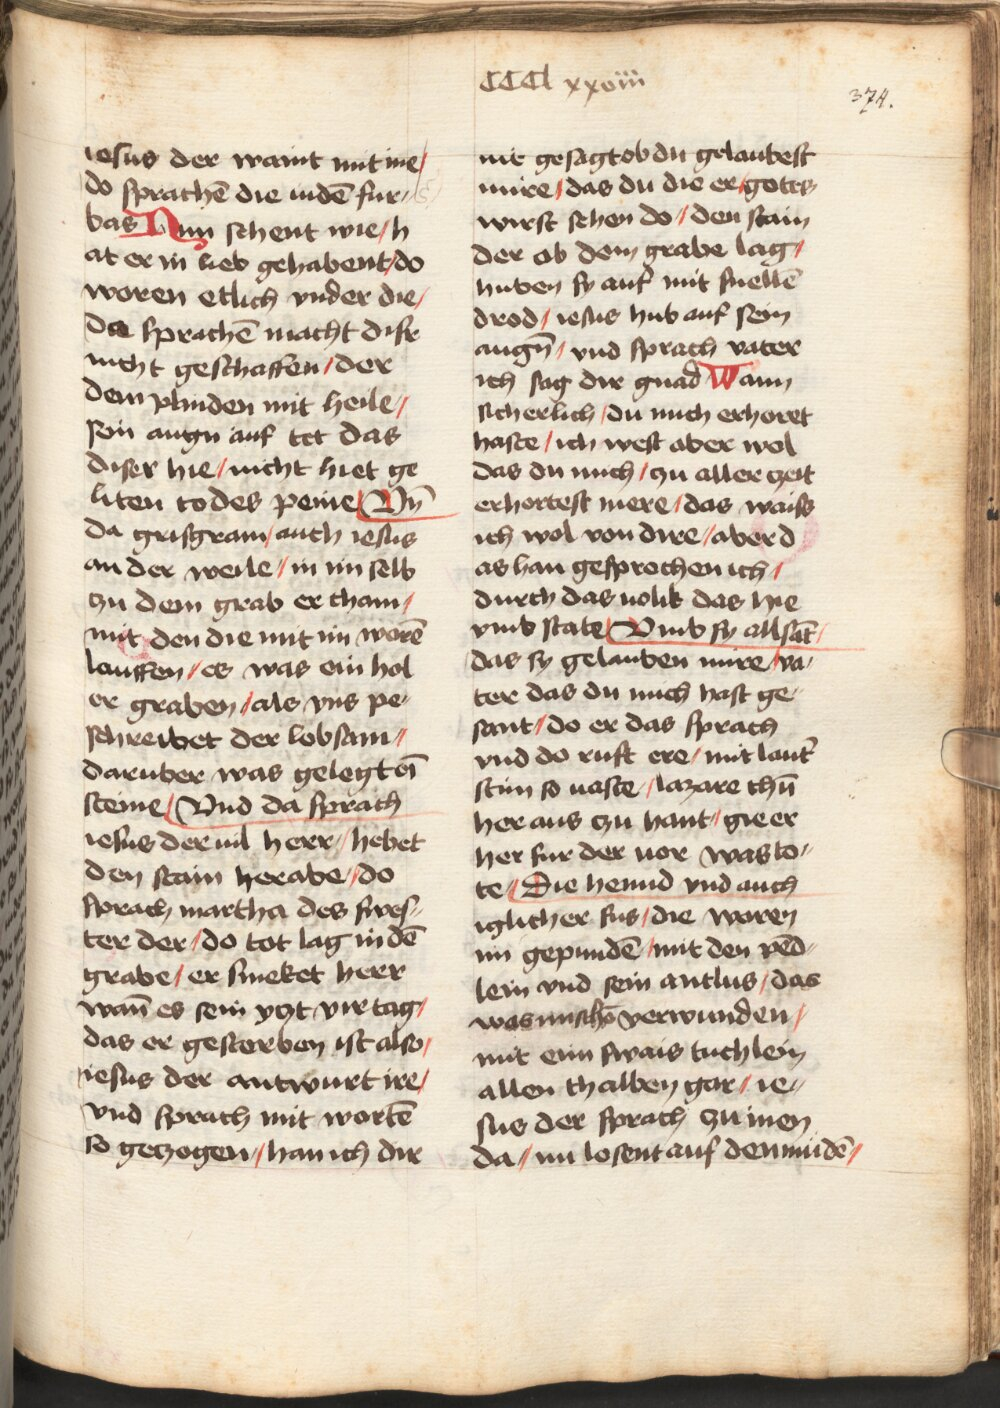 CCCl xxviiii
374.
iesus der waint mit ine/
do sprachē die iudē fur/
bas Nun sehent wie/ h
at er in lieb gehabent/ do
woren etlich vnder die/
Da sprachē macht diser
nicht geschaffen/ der
dem plinden mit heile/
sein augn auf tet das
diser hie/ nicht hiet ge
liten todes peine/ Vn̄
da grisgram/ auch iesus
an der weile/ in im selb
zu dem grab er cham/
mit den die mit im worē
lauffen/ es was ein hol
er graben/ als vns pe/
schreibet der lobsam/
daruber was gelegt ein
steine/ Vnd da sprach
iesus der uil herr/ hebet
den stain herabe/ do
sprach martha des swes/
ter der/ do tot lag in dē
grabe/ er smeket herr
wan̄ es sein yczt vir tag/
das er gestorben ist also/
iesus der antwurt ire/
vnd sprach mit wortē
so geczogen/ han ich dir
nit gesagt ob du gelaubest
mire/ das du die er/ gotes
wirst sehen do/ den stain
der ob dem grabe lag/
huben sy auf mit snellē
drod/ iesus hub auf sein
augn̄/ vnd sprach vater
ich sag dir gnad Wann
sicherlich/ du mich erhoret
haste/ ich west aber wol
das du mich/ zu aller czeit
erhortest mere/ das waiss
ich wol von dire/ aber d
as han gesprochen ich/
durch das uolk das hie
vmb state/ Vmb sy allsāt/
das sy gelauben mire/ va/
ter das du mich hast ge/
sant/ do er das sprach
vnd do ruft ere/ mit laut̄
stim so uaste/ lazare chū
her aus zu hant/ gie er
her fur der uor was to/
te/ Die hennd vnd auch
iglicher fus/ die woren
im gepundē/ mit den pēd/
lein vnd sein antlus/ das
was verwunden/
mit eim swais tuchlein
allen thalben gar/ ie/
sus der sprach zu inen
da/ nu losent auf den mūdē/